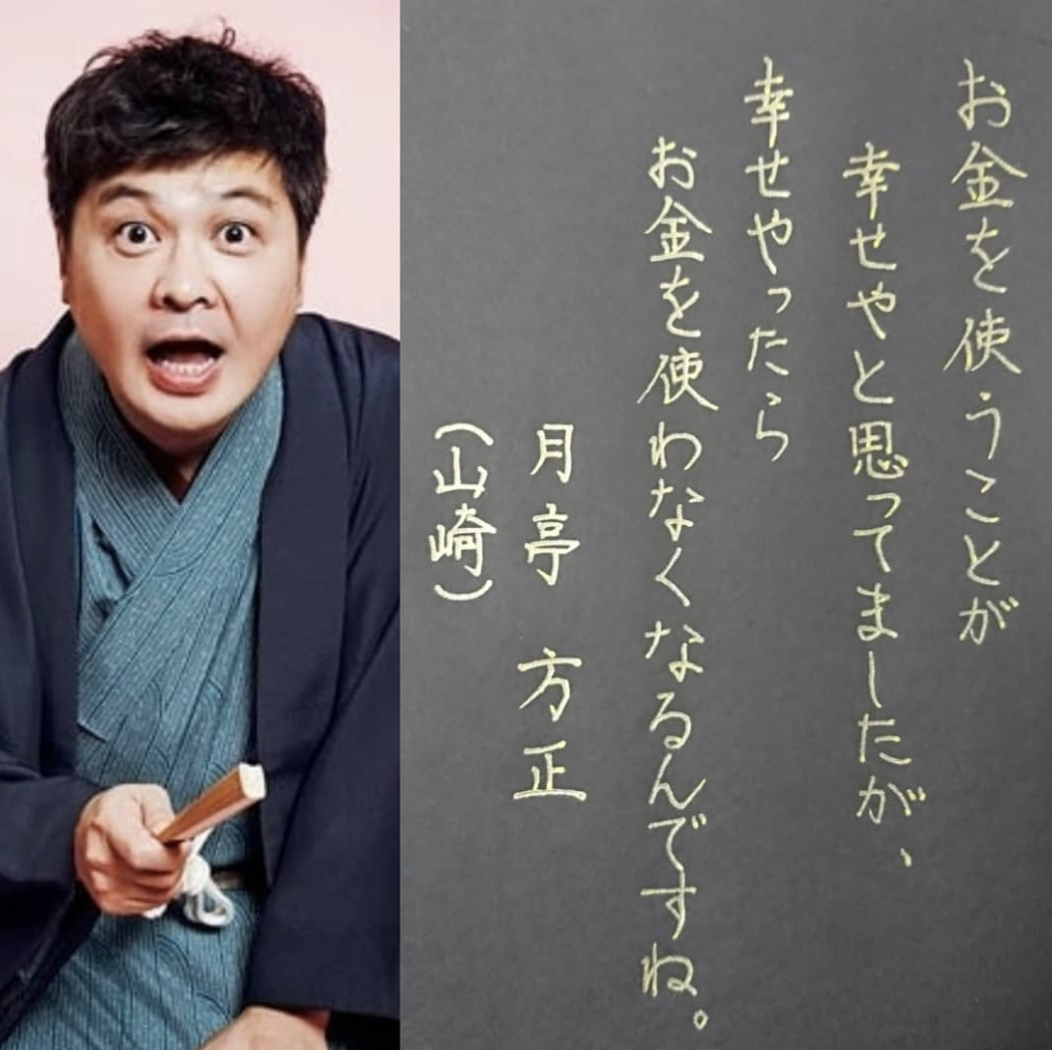 お金を使うことが
幸せやと思ってましたが、
幸せやったら
お金を使わなくなるんですね。
月亭 方正
(山崎)